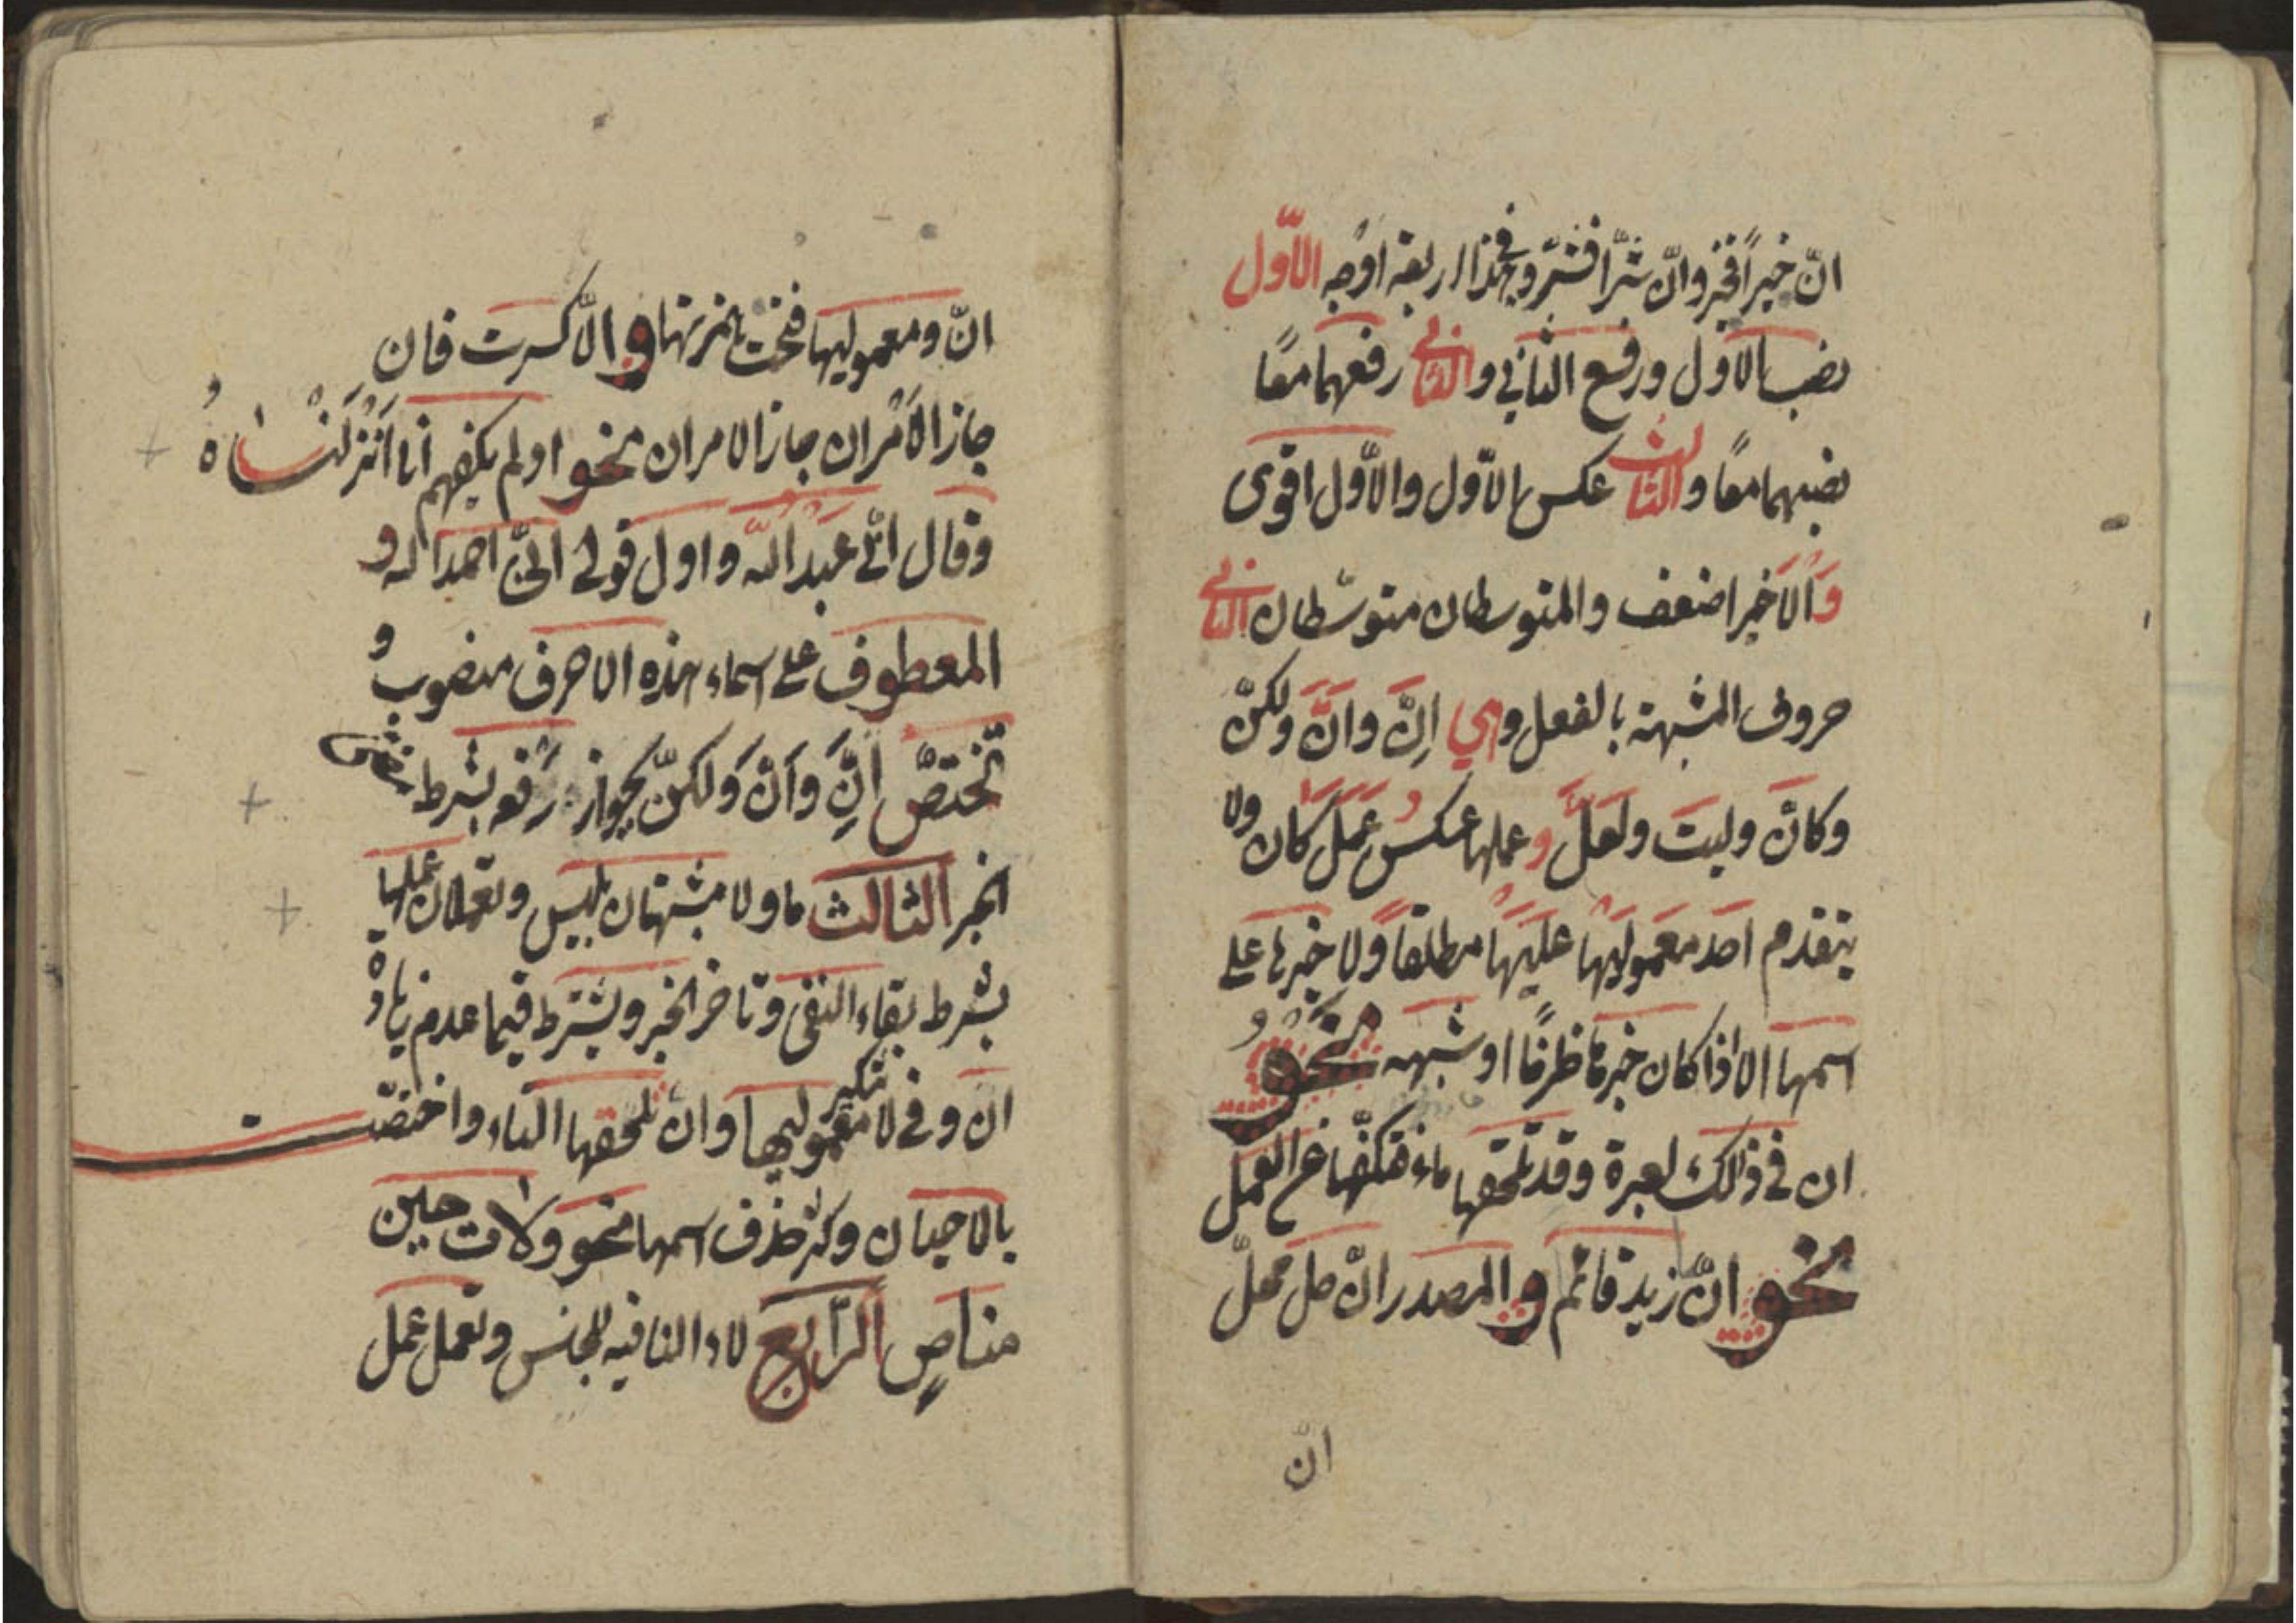 انّ خيرًا فخير وانّ شرّا فشرّ وفي هذا اربعة اوجه الاوّل
نصب الاول ورفع الثاني والثاني رفعهما معًا
نصبهما معًا والثالث عكس الاوّل والاوّل اقوى
وَالاَخير اضعف والمتوسطان متوسّطان الثاني
حروف المشبهة بالفعل وهي اِنَّ وانَّ ولكنّ
وكانّ وليتَ ولعَلَّ وعملها عكسُ عَمَلَ كَانَ ولا
يتقدم احد معموليها عليها مطلقاً ولا خبرها على
اسمها الا اذا كان خبرها ظرفًا او شبهه نَحْوُ
ان في ذلك لعبرة وقد تلحقها ماء فتكفّها عن العمل
نحو انّما زيد قائم والمصدر انّ حل محلّ
انّ
انّ ومعموليها فتحت همزتها والاّ كسرت فان
جاز الاَمْران جاز الامران نحو اولم يكفهم انا اَنْزَلْنَاهُ
وقال انّي عَبْدُ اللّه واول قولي انّي احمد الله و
المعطوف على اسماء هذه الاحرف منصوب و
تختصّ اِنَّ وَاَنَّ وَلكنّ بجواز رَفعه بشرط مُضِيّ
الخبر الثالث ما ولا مشبهتان بليس وتعملان عملها
بشرط بقاء النفى وتاخر الخبر ويشترط فيما عدم زيادة
ان وفي لا تنكير معموليها وان تلحقها التاء واختصّت
بالاحيان وكثر حذف اسمها نحو ولات حين
مناصٍ الرّابع لاء النافيه للجنس وتعمل عمل